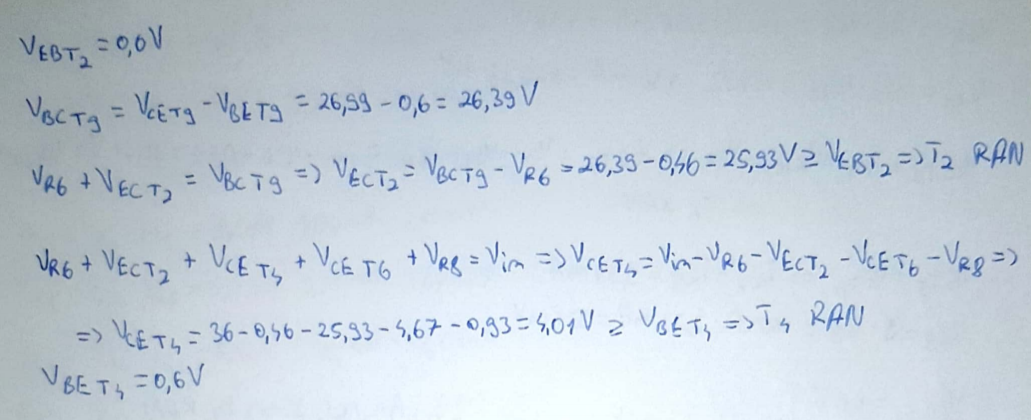 VEBT2 = 0,6V
VBCT9 = VCET9 - VBET9 = 26,99 - 0,6 = 26,39 V
VR6 + VECT2 = VBCT9 => VECT2 = VBCT9 - VR6 = 26,39 - 0,46 = 25,93V ≥ VEBT2 => T2 RAN
VR6 + VECT2 + VCET4 + VCET6 + VR8 = Vin => VCET4 = Vin - VR6 - VECT2 - VCET6 - VR8 =>
=> VCET4 = 36 - 0,46 - 25,93 - 4,67 - 0,93 = 4,01V ≥ VBET4 => T4 RAN
VBET4 = 0,6V